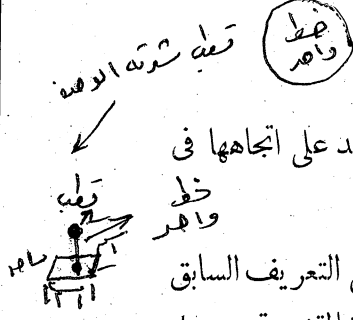 خط
واحد
قطب شدته الوحدة
د على اتجاهها فى
قطب
خط
واحد
التعريف السابق